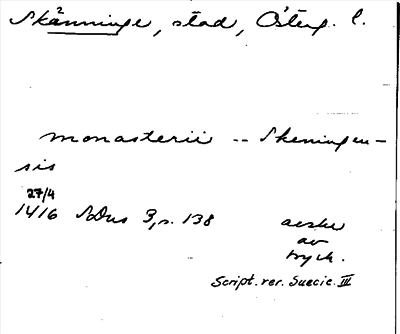 Skänninge, stad, Österg. l.
monasterii -- Skeningen-
sis
27/4
1416 SvDns 3, s. 138
avskr
av
tryck.
Script. rer. Suecic. III